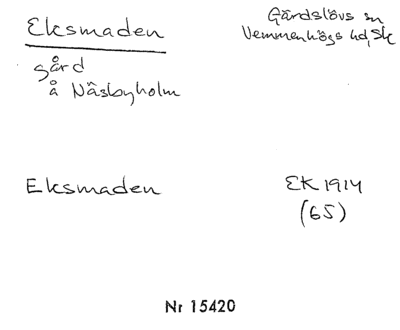 Eksmaden
Gärdslövs sn
Vemmenhögs hd, Sk
gård
å Näsbyholm
Eksmaden
EK 1914
(65)
Nr 15420